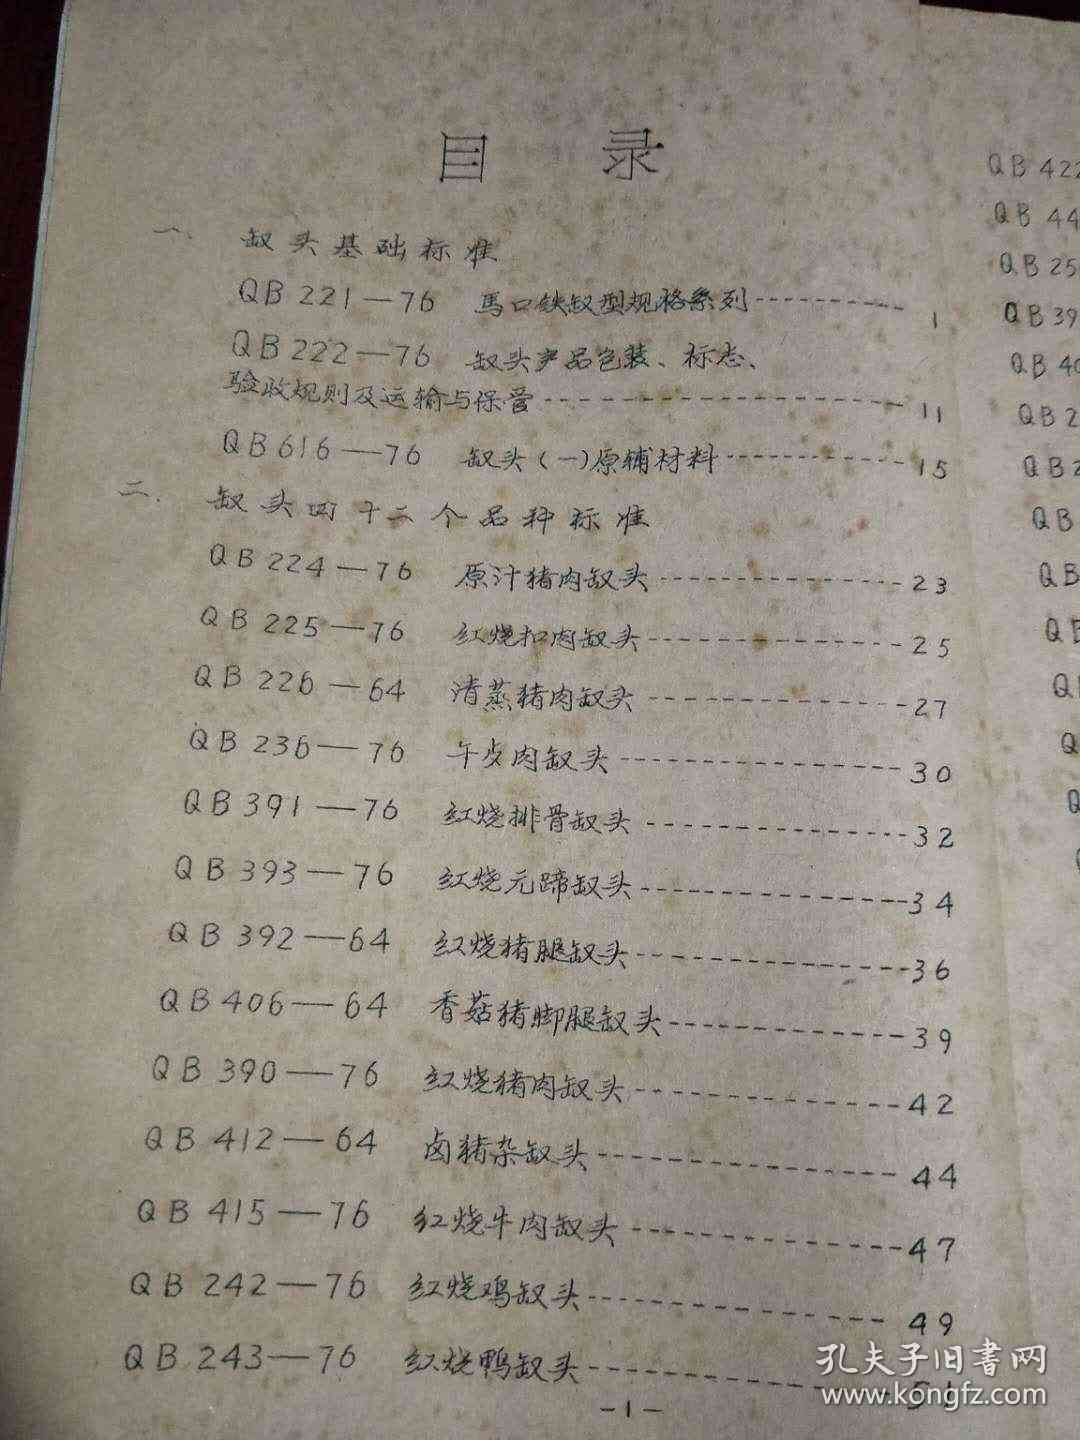 目 录
一. 缸头基础标准
QB 221—76 馬口铁缸型规格系列----------1
QB 222—76 缸头产品包装、标志、
验收规则及运输与保管----------11
QB 616—76 缸头(一)原辅材料----------15
二. 缸头四十二个品种标准
QB 224—76 原汁猪肉缸头----------23
QB 225—76 红烧扣肉缸头----------25
QB 226—64 清蒸猪肉缸头----------27
QB 236—76 午歺肉缸头----------30
QB 391—76 红烧排骨缸头----------32
QB 393—76 红烧元蹄缸头----------34
QB 392—64 红烧猪腿缸头----------36
QB 406—64 香菇猪脚腿缸头----------39
QB 390—76 红烧猪肉缸头----------42
QB 412—64 卤猪杂缸头----------44
QB 415—76 红烧牛肉缸头----------47
QB 242—76 红烧鸡缸头----------49
QB 243—76 红烧鸭缸头----------51
-1-
QB 422
QB 44
QB 25
QB 39
QB 40
QB 2
QB 2
QB
QB
孔夫子旧書网
www.kongfz.com